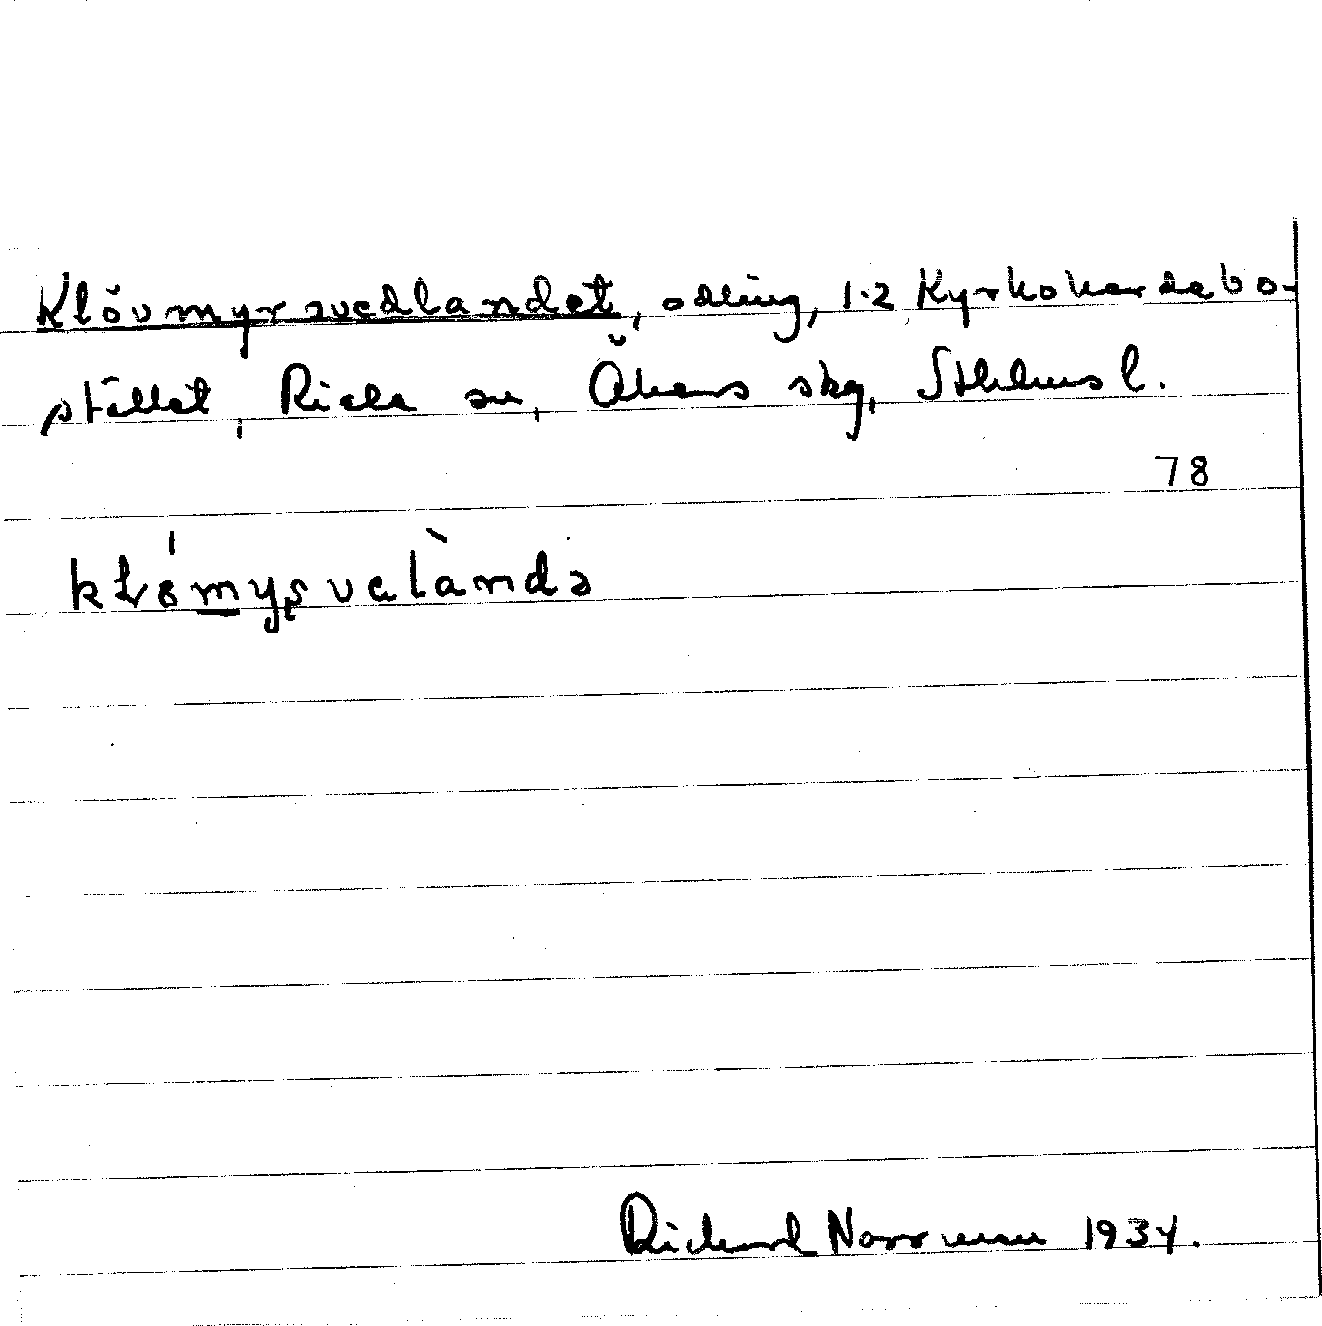 Klövmyrsvedlandet, odling, 1-2 Kyrkoherdebo-
stället, Riala sn, Åkers skg, Sthlms l.
78
Richard Norrman 1934.